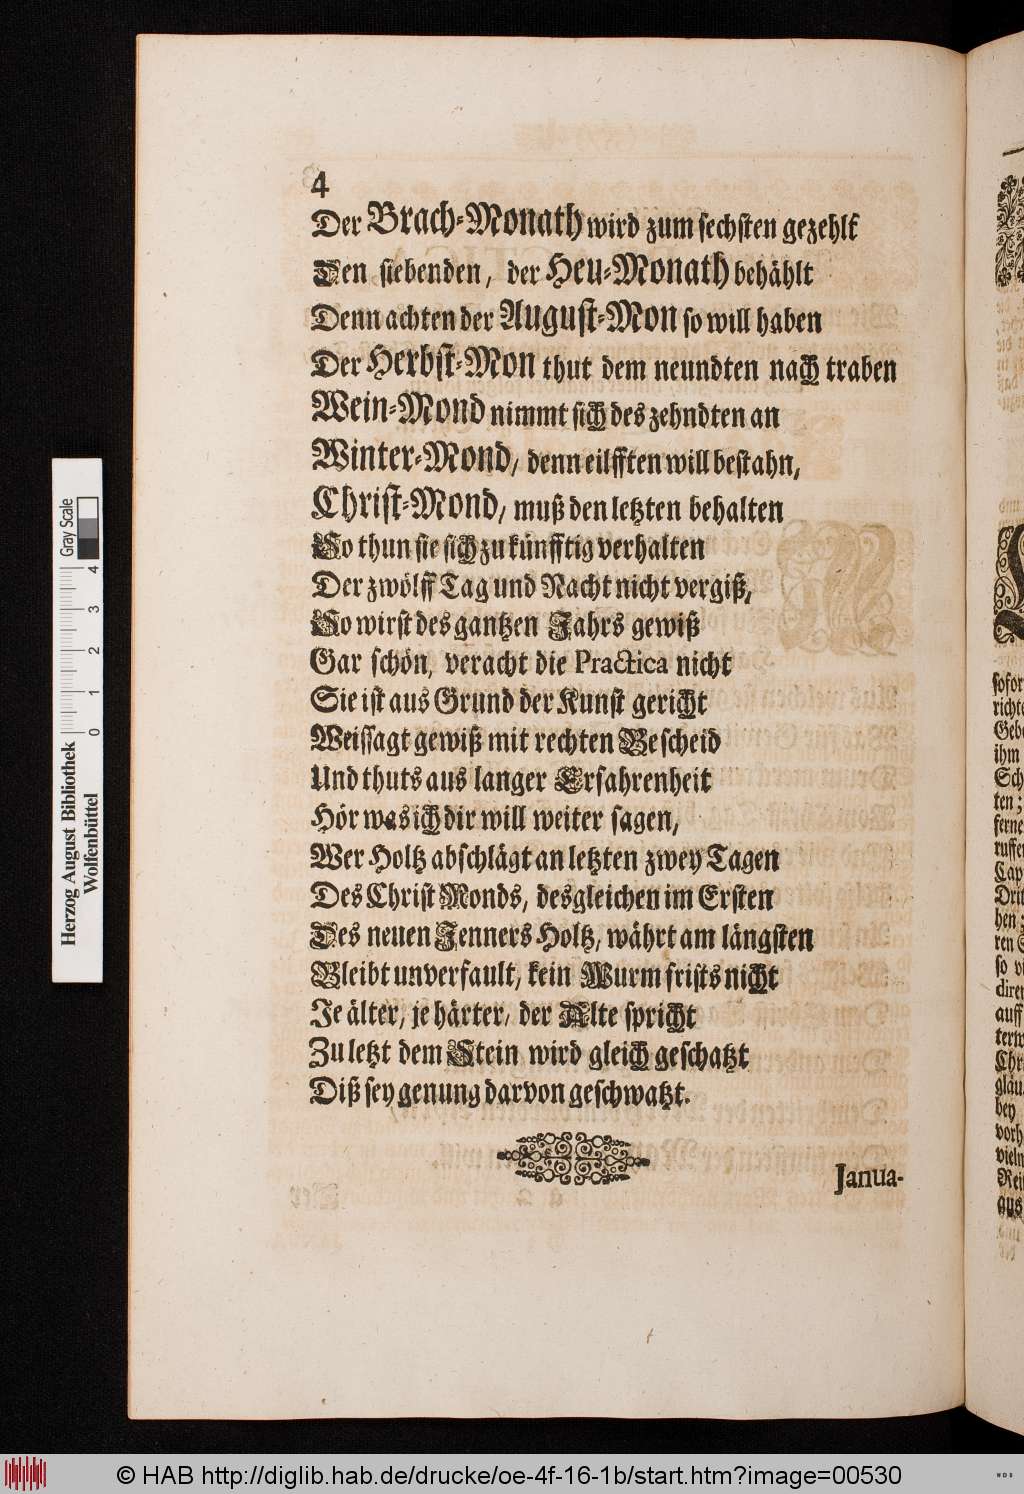 4
Der Brach-Monath wird zum sechsten gezehlt
Den siebenden, der Heu-Monath behählt
Denn achten der August-Mon so will haben
Der Herbst-Mon thut dem neundten nach traben
Wein-Mond nimmt sich des zehndten an
Winter-Mond, denn eilfften will bestahn,
Christ-Mond, muß den letzten behalten
So thun sie sich zu künfftig verhalten
Der zwölff Tag und Nacht nicht vergiß,
So wirst des gantzen Jahrs gewiß
Gar schön, veracht die Practica nicht
Sie ist aus Grund der Kunst gericht
Weissagt gewiß mit rechten Bescheid
Und thuts aus langer Erfahrenheit
Hör was ich dir will weiter sagen,
Wer Holtz abschlägt an letzten zwey Tagen
Des Christ Monds, desgleichen im Ersten
Des neuen Jenners Holtz, währt am längsten
Bleibt unverfault, kein Wurm frists nicht
Je älter, je härter, der Alte spricht
Zu letzt dem Stein wird gleich geschatzt
Diß sey genung darvon geschwatzt.
Janua-
sofor
richte
Gebe
ihm
Sch
ten;
ferne
ruffen
Cap
hen
so vi
dire
auff
bey
vorh
vieln
aus
Herzog August Bibliothek
Wolfenbüttel
0 1 2 3 4
Gray Scale
© HAB http://diglib.hab.de/drucke/oe-4f-16-1b/start.htm?image=00530